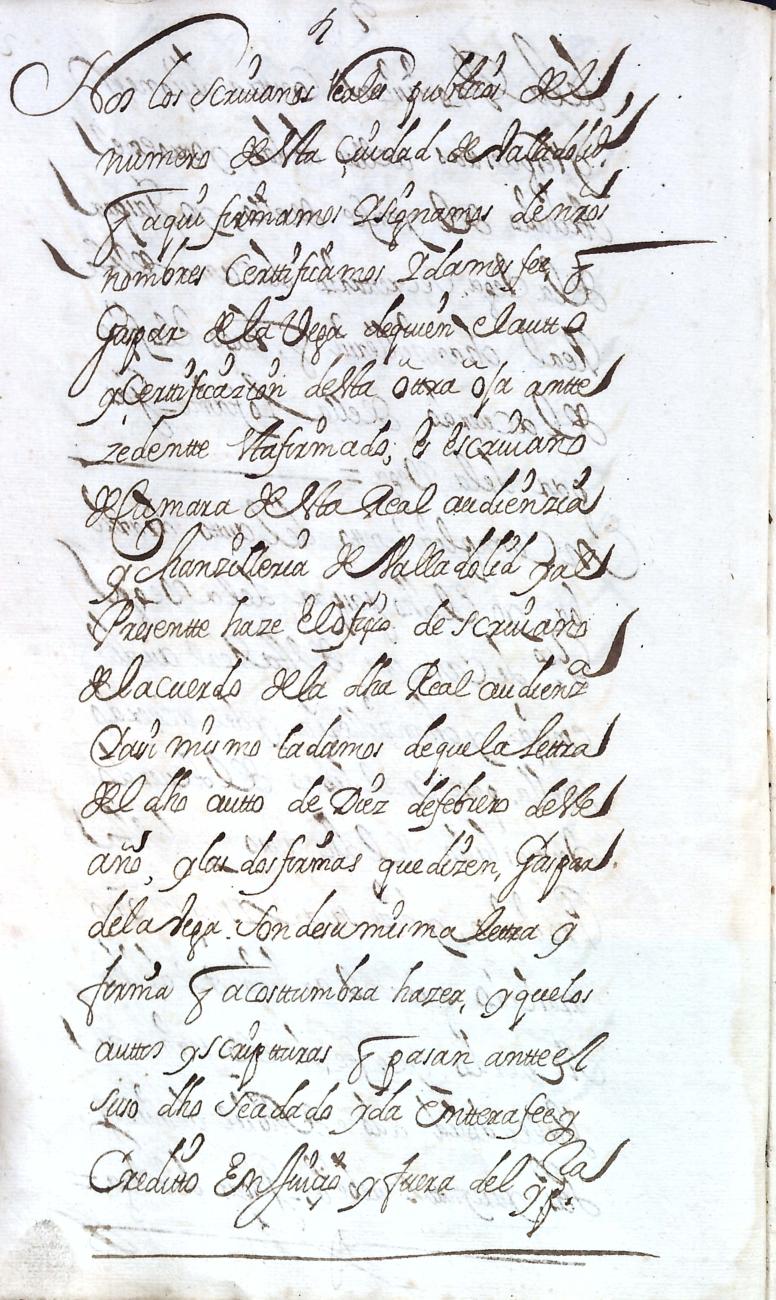 Nos los scriuanos Reales pubcos del
numero desta Ciudad de Valladolid
q aqui firmamos Y signamos de nros
nombres Certtificamos Y damos fee q
Gaspar de la Vega de quien el autto
y Certtificazion desta ottra oja antte
zedentte stafirmado, es escriuano
de Camara desta Real audienzia
y chanzilleria de Valladolid y al
Presentte haze El ofiçio de scriuano
del acuerdo de la dha Real audienza
Y asi mismo la damos de que la Lettra
del dho autto de Diez de febrero deste
año, y las dos firmas que dizen, Gaspar
de la Vega. Son de su misma Lettra y
firma q acosttumbra hazer, y que los
auttos y scriptturas q pasan antte el
suso dho se a dado y da Enttera fee y
Creditto En Juicio y fuera del y pa